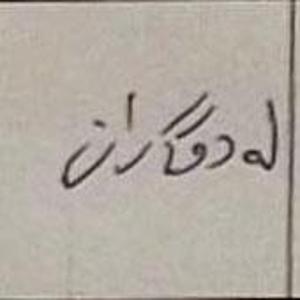 لە دوگاران